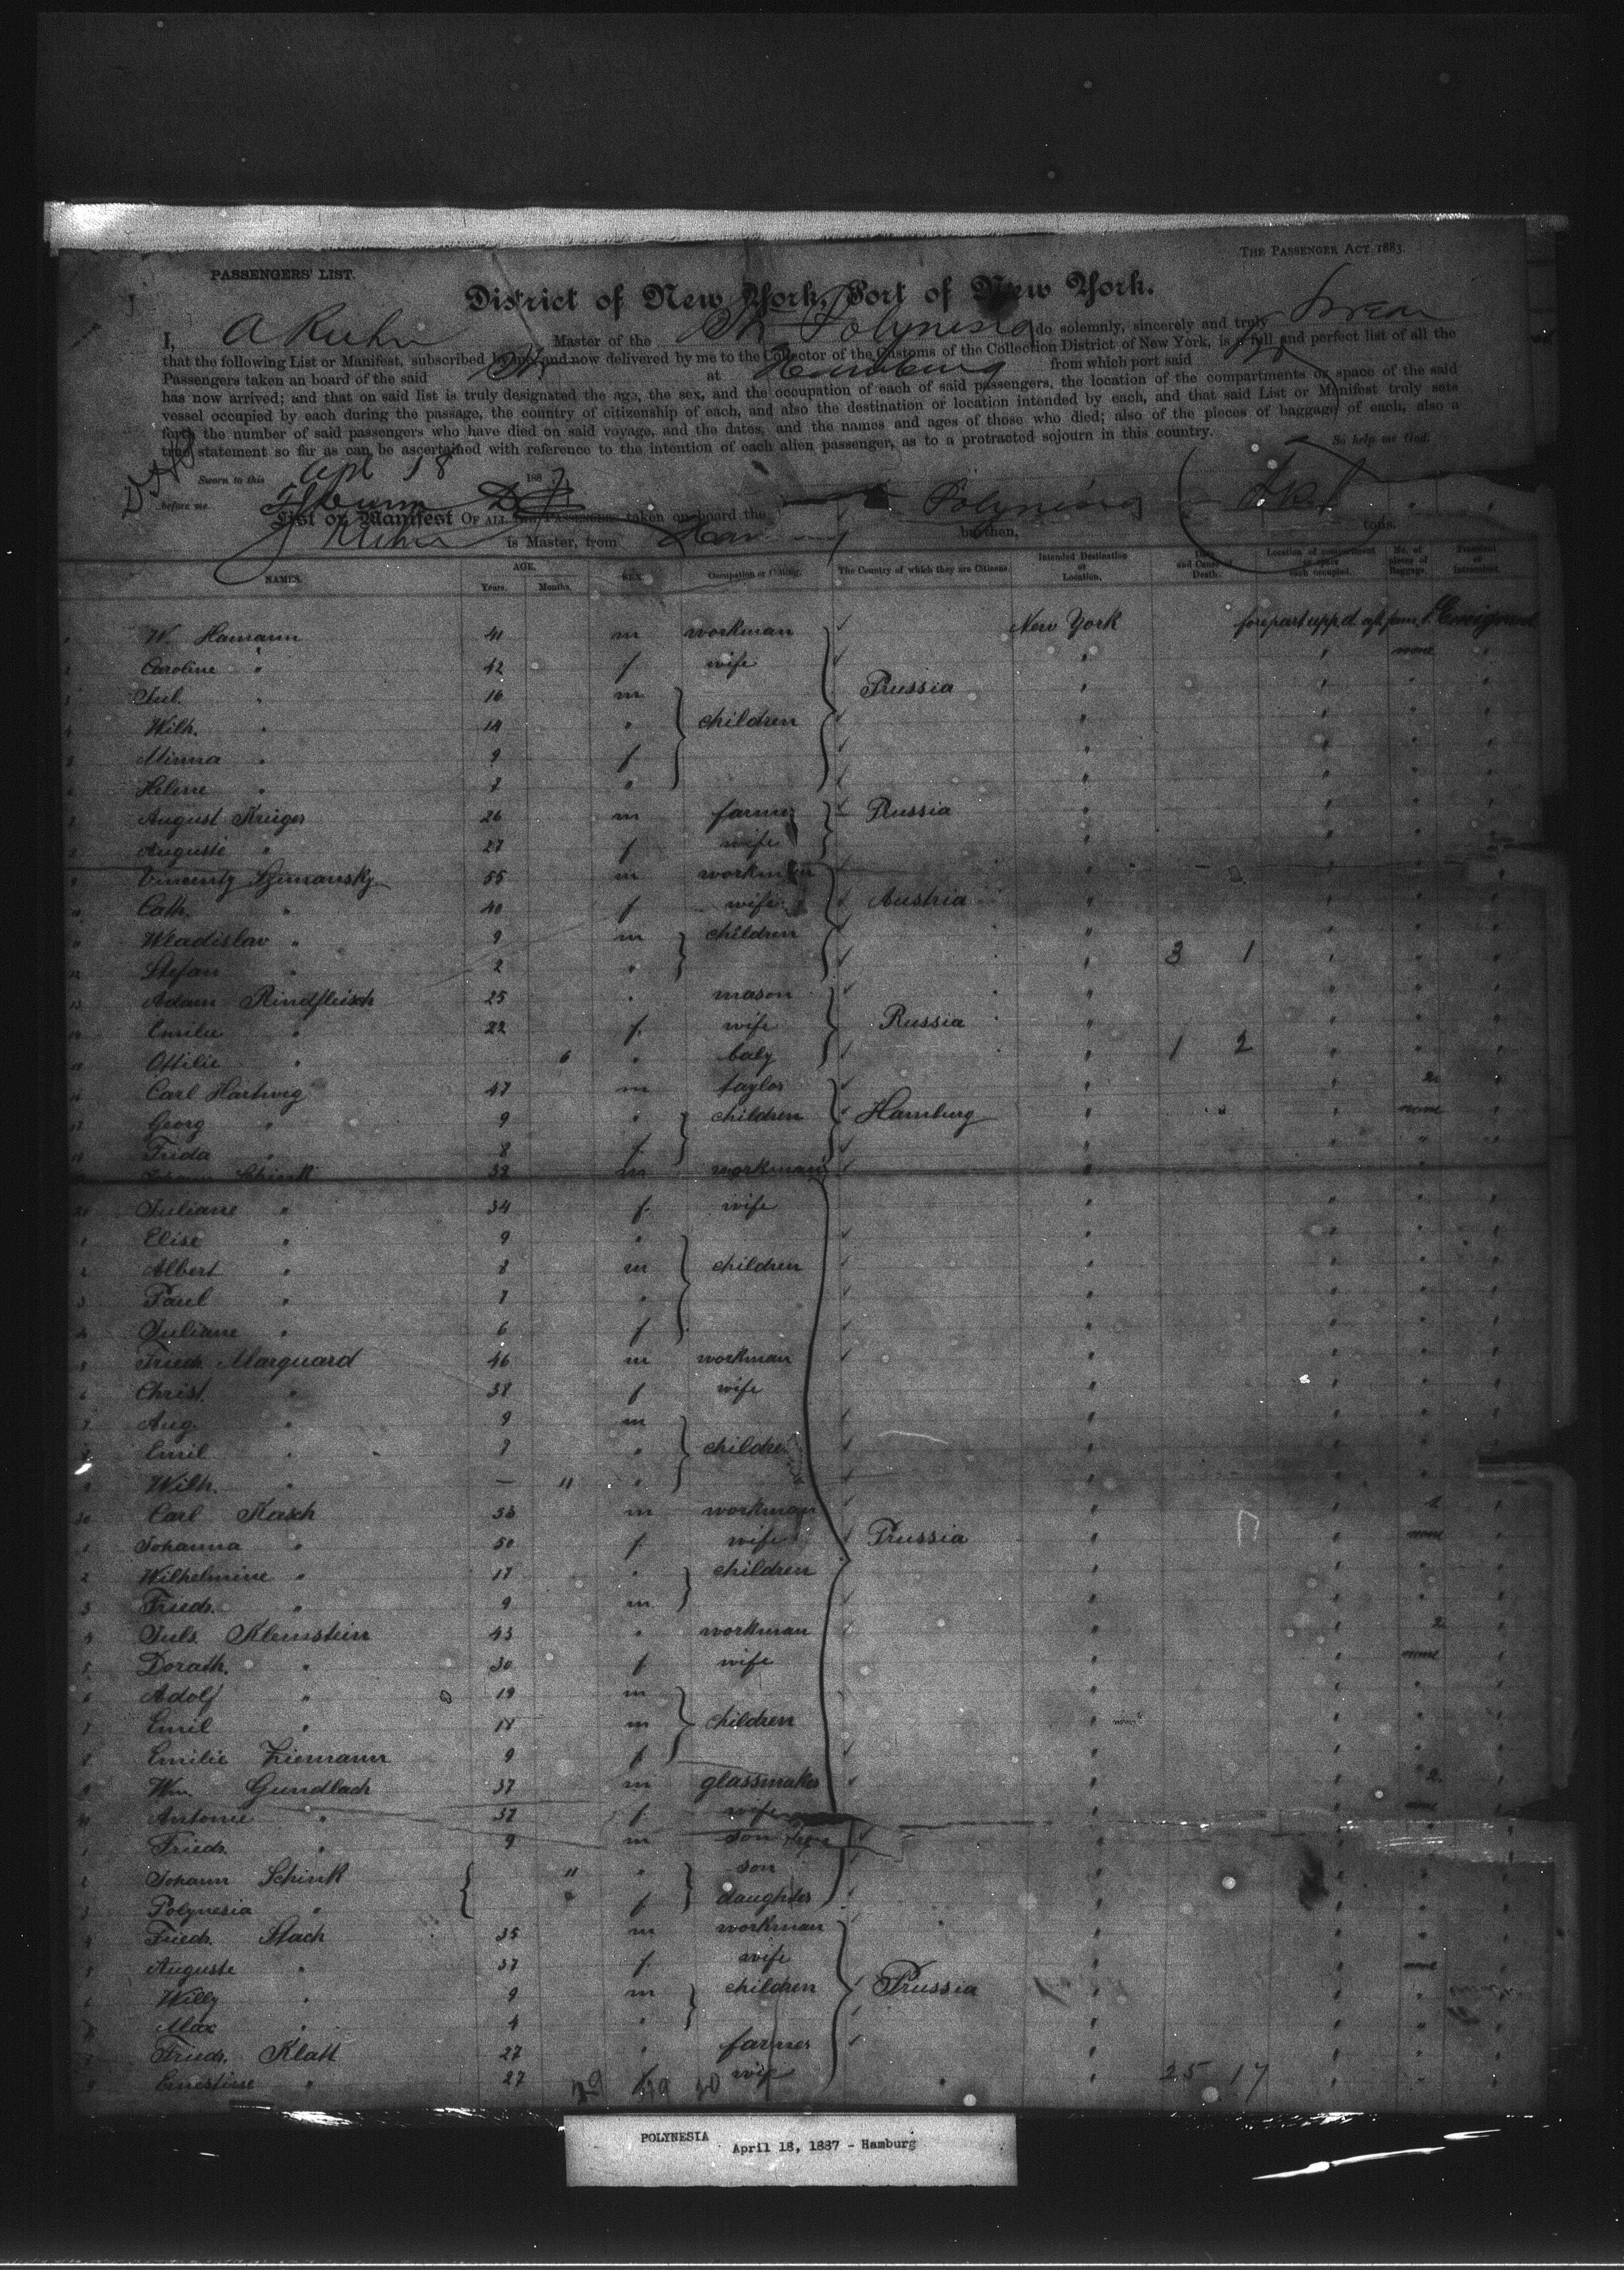 THE PASSENGER ACT 1883.
PASSENGERS' LIST.
District of New York, Port of New York.
I, A Kuhn Master of the Str Polynesia do solemnly, sincerely and truly Swear
that the following List or Manifest, subscribed by me, and now delivered by me to the Collector of the Customs of the Collection District of New York, is a full and perfect list of all the
Passengers taken on board of the said Str at Hamburg from which port said
has now arrived; and that on said list is truly designated the age, the sex, and the occupation of each of said passengers, the location of the compartments or space of the said
vessel occupied by each during the passage, the country of citizenship of each, and also the destination or location intended by each, and that said List or Manifest truly sets
forth the number of said passengers who have died on said voyage, and the dates, and the names and ages of those who died; also of the pieces of baggage of each, also a
true statement so far as can be ascertained with reference to the intention of each alien passenger, as to a protracted sojourn in this country.
So help me God.
Sworn to this Apl 18 1887
before me
List or Manifest OF ALL THE PASSENGERS taken on board the Polynesia
Kuhn is Master, from Ham burthen, tons.
NAMES. AGE. Years. Months. SEX. Occupation or Calling. The Country of which they are Citizens. Intended Destination or Location. Date and Cause of Death. Location of compartment or space each occupied. No. of pieces of Baggage. Transient or Intransient.
W. Hamann 41 m workman New York forepart upp d. aft Emigrant
2 Caroline " 42 f wife " " none "
3 Jul. " 16 m Prussia " " " "
4 Wilh. " 14 " children " " " "
5 Minna " 9 f " " " "
6 Helene " 7 " " " " "
7 August Krüger 26 m farmer Prussia " " " "
8 Auguste " 27 f wife " " " "
9 Vincenty Szimansky 55 m workman " " "
10 Cath. " 40 f wife Austria " " " "
11 Wladislav " 9 m children " " " "
12 Stefan " 2 " " 3 1 " " "
13 Adam Rindfleisch 25 " mason " " " "
14 Emilie " 22 f. wife Russia " " " "
15 Ottilie " 6 " baby " 1 2 " " "
16 Carl Hartwig 47 m taylor " " 2 "
17 Georg " 9 " children Hamburg " " none "
18 Frida " 8 f. " " " "
Johann Schink 38 m workman " " " "
20 Juliane " 34 f. wife " " " "
1 Elise " 9 " " " " "
2 Albert " 8 m children " " " "
3 Paul " 7 " " " " "
4 Juliane " 6 f " " " "
5 Friedr. Marquard 46 m workman " " " "
6 Christ. " 38 f wife " " " "
7 Aug. " 9 m " " " "
8 Emil " 7 " children " " " "
9 Wilh. " — 11 " " " " "
30 Carl Kasch 53 m workman " " "
1 Johanna " 50 f. wife Prussia " " none "
2 Wilhelmine " 17 " children " " " "
3 Friedr. " 9 m " " " "
4 Juls. Klemstein 43 " workman " " 2 "
5 Dorath. " 30 f wife " " none "
6 Adolf " 19 m " " " "
7 Emil " 18 m children " " " "
8 Emilie Ziemann 9 f " " " "
9 Wm. Gundlach 37 m glassmaker " " 2 "
40 Antonie " 37 f. wife " " none "
1 Friedr. " 9 m son " " " "
2 Johann Schink 11 " son " " " "
3 Polynesia " f daughter " " " "
4 Friedr. Stach 35 m workman " " " "
5 Auguste " 37 f. wife " " none "
6 Willy " 9 m children Prussia " " " "
7 Max " 4 " " " " "
8 Friedr. Klatt 27 " farmer " " " "
9 Ernestine " 27 wife " 25 17 " " "
POLYNESIA
April 18, 1887 - Hamburg